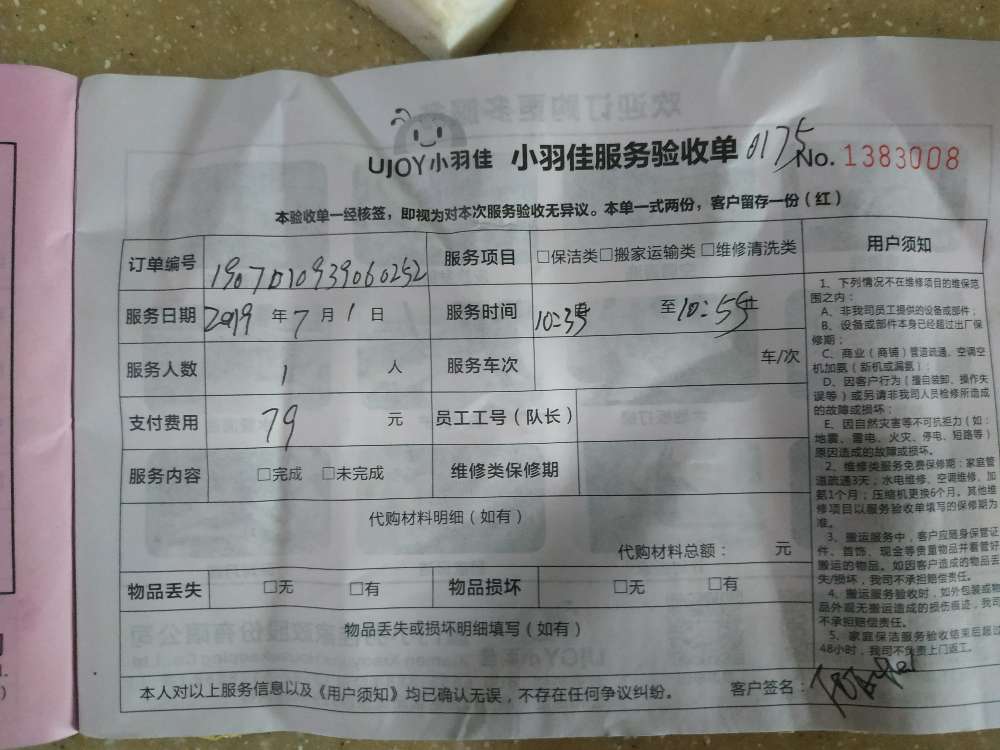 UJOY小羽佳 小羽佳服务验收单 0175 No. 1383008
本验收单一经核签，即视为对本次服务验收无异议。本单一式两份，客户留存一份（红）
订单编号 1907010939060252 服务项目 □保洁类□搬家运输类 □维修清洗类
服务日期 2019 年 7 月 1 日 服务时间 10:35 至 10:55
服务人数 1 人 服务车次 车/次
支付费用 79 元 员工工号（队长）
服务内容 □完成 □未完成 维修类保修期
代购材料明细（如有）
代购材料总额： 元
物品丢失 □无 □有 物品损坏 □无 □有
物品丢失或损坏明细填写（如有）
本人对以上服务信息以及《用户须知》均已确认无误，不存在任何争议纠纷。 客户签名：
用户须知
1、下列情况不在维修项目的维保范
围之内：
A、非我司员工提供的设备或部件；
B、设备或部件本身已经超过出厂保
修期；
C、商业（商铺）管道疏通、空调空
机加氨（新机或漏氨）；
D、因客户行为（擅自装卸、操作失
误等）或另请非我司人员检修所造成
的故障或损坏；
E、因自然灾害等不可抗拒力（如：
地震、雷电、火灾、停电、短路等）
原因造成的故障或损坏。
2、维修类服务免费保修期：家庭管
道疏通3天，水电维修、空调维修、加
氨1个月；压缩机更换6个月。其他维
修项目以服务验收单填写的保修期为
准。
3、搬运服务中，客户应随身保管证
件、首饰、现金等贵重物品并看管好
搬运的物品。如因客户造成的物品丢
失/损坏，我司不承担赔偿责任。
4、搬运服务验收时，如外包装或物
品外观无搬运造成的损伤痕迹，我司
不承担赔偿责任。
5、家庭保洁服务验收结束后超过
48小时，我司不负责上门返工。